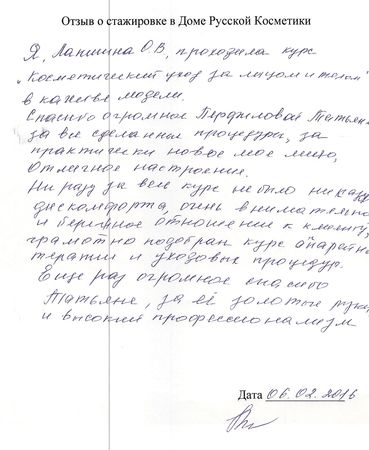 Отзыв о стажировке в Доме Русской Косметики
Я, Лапшина О.В, проходила курс
"Косметический уход за лицом и телом"
в качестве модели.
Спасибо огромное Татьяне
за все сделанные процедуры, за
практически новое мое лицо,
отличное настроение.
Ни разу за весь курс не было
дискомфорта, очень внимательно
и бережное отношение к клиенту,
грамотно подобран курс
терапии и уходовых процедур.
Еще раз огромное спасибо
Татьяне, за её золотые руки,
и высокий профессионализм
Дата 06.02.2016